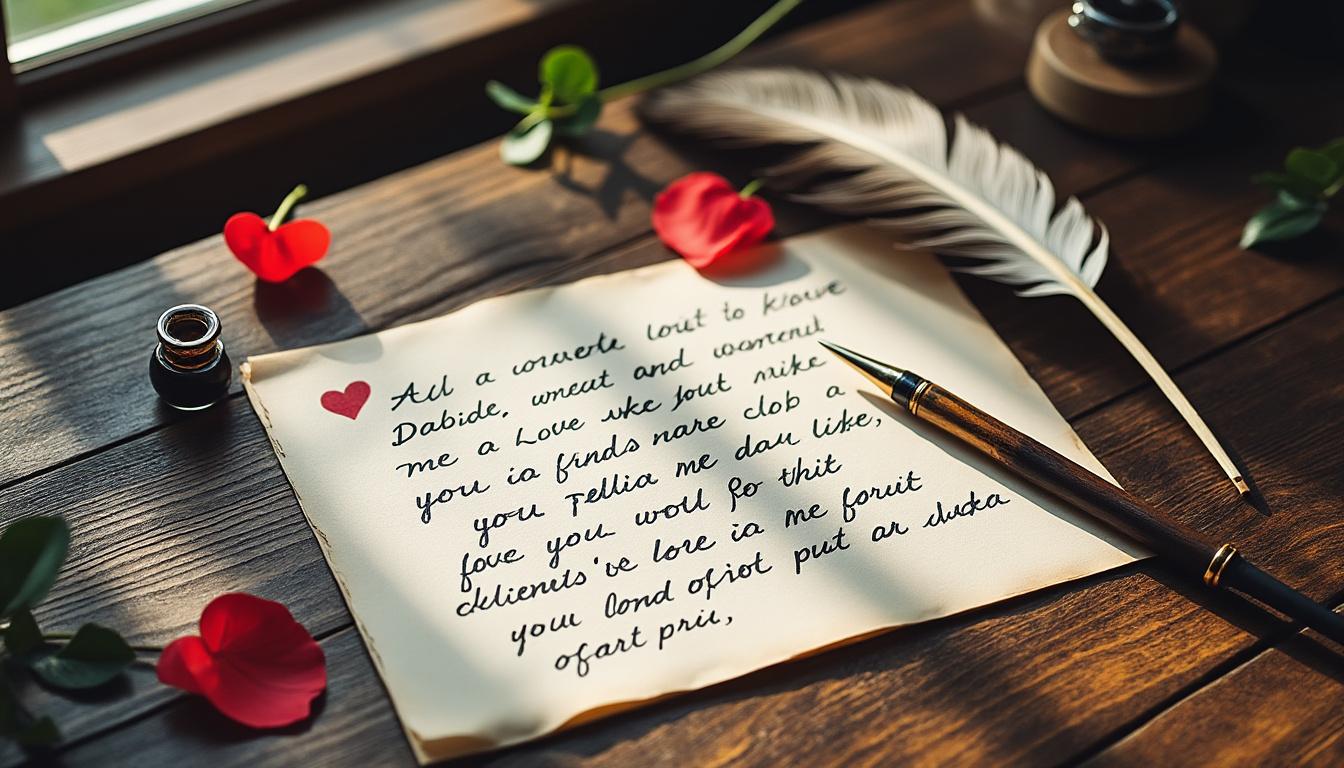 All a conuerte louit to kiouve
Dabide, wneut and womenit
me a Love uke fout mike
you ia finds nare clob a
you Tellia me dau like,
fove you woll fo thit
cklienels've lore ia me foruit
you lond ofiot put ar duka
ofart prii,